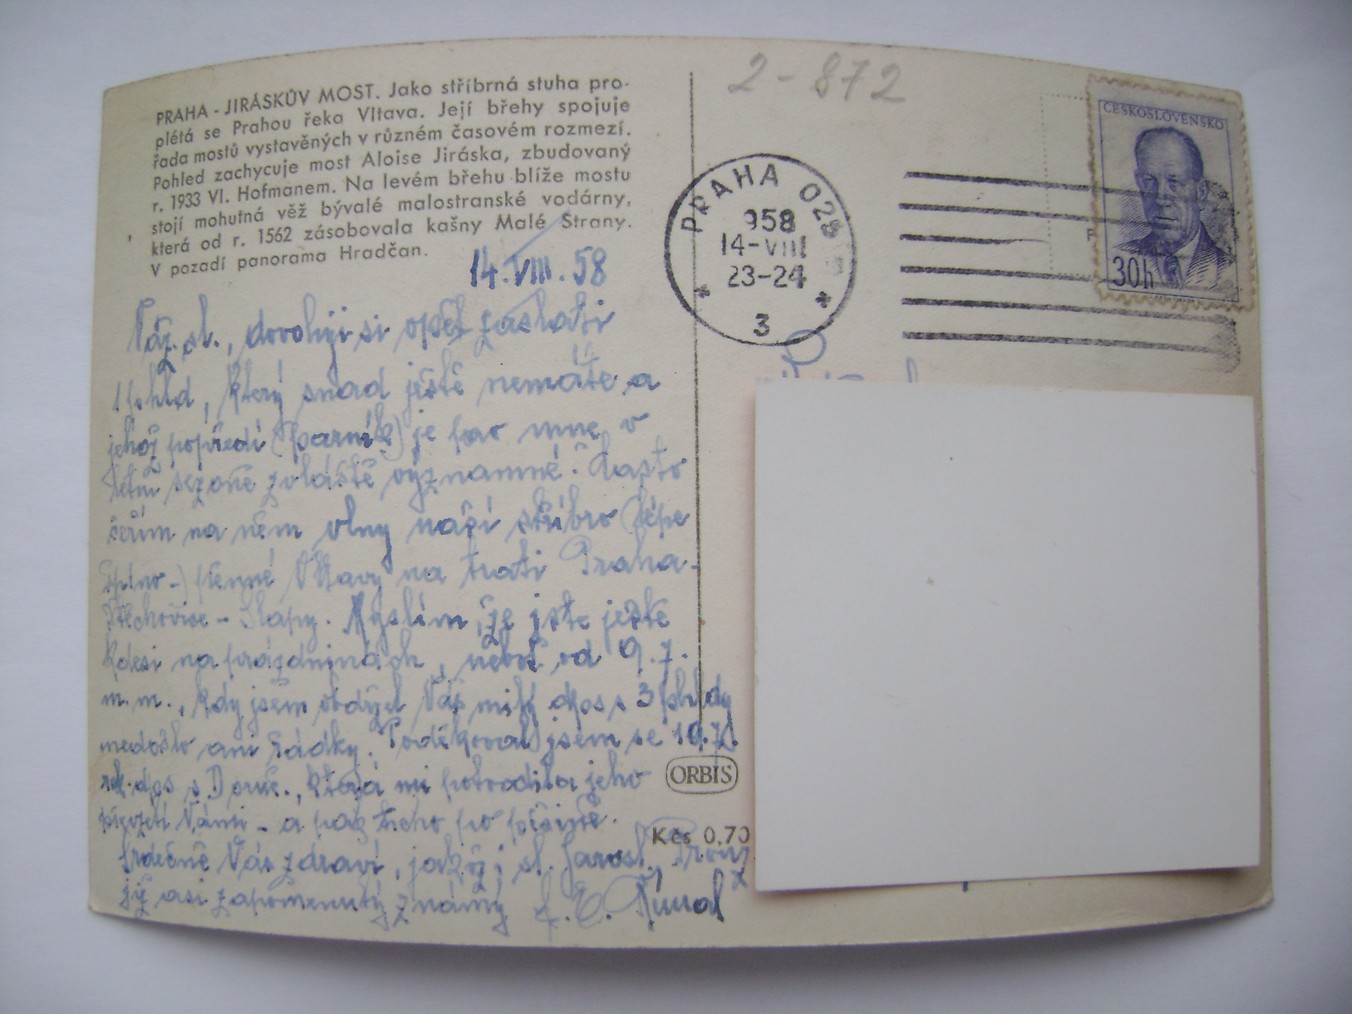 PRAHA - JIRÁSKŮV MOST. Jako stříbrná stuha pro-
plétá se Prahou řeka Vltava. Její břehy spojuje
řada mostů vystavěných v různém časovém rozmezí.
Pohled zachycuje most Aloise Jiráska, zbudovaný
r. 1933 Vl. Hofmanem. Na levém břehu blíže mostu
stojí mohutná věž bývalé malostranské vodárny,
která od r. 1562 zásobovala kašny Malé Strany.
V pozadí panorama Hradčan.
14.VIII.58
Váž. sl., dovoluji si opět zaslati
1 phld, který snad ještě nemáte a
jehož popředí (parník) je pro mne v
letní sezoně zvláště významné. Často
čeřím na něm vlny naší stříbro (lépe
špíno-) pěnné Vltavy na trati Praha-
Štěchovice - Slapy. Myslím, že jste ještě
kdesi na prázdninách, neboť od 9.7.
m.m., kdy jsem obdržel Váš milý dps s 3 phldy
nedošlo ani řádky. Poděkoval jsem se 10.7.
dps s která mi potvrdila jeho
převzetí Vámi - a pak ticho po pěšině.
Srdečně Vás zdraví, jakož i sl. Jarosl.
již asi zapomenutý známý
2-872
PRAHA 025
958
14-VIII
23-24
3
ČESKOSLOVENSKO
30h
ORBIS
Kčs 0.70